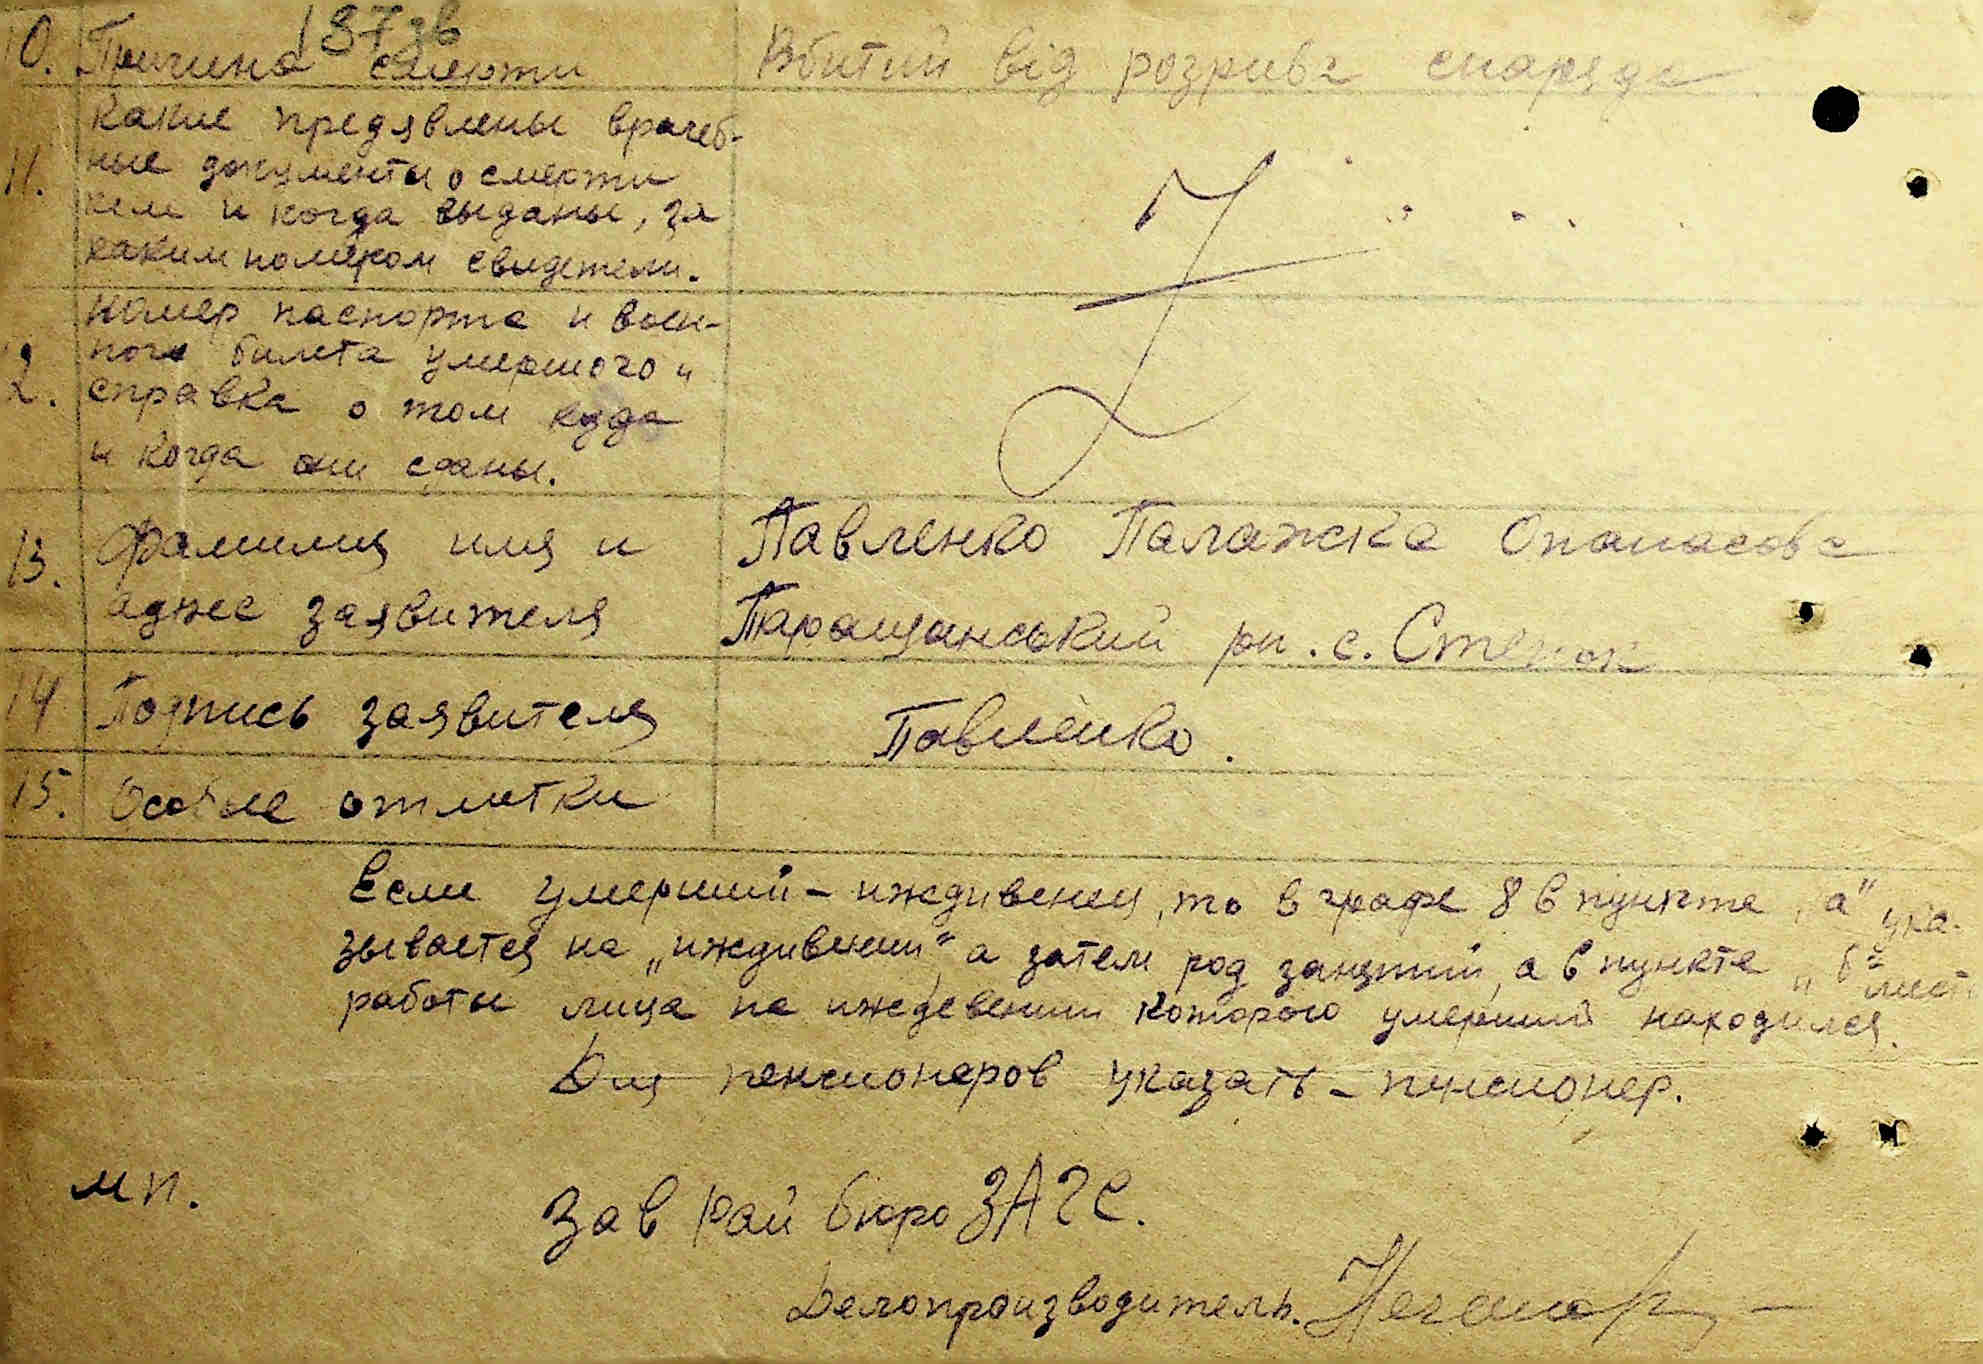 137зв
10. Причина смерти Вбитий від розрива снаряда
Какие предявлены врачеб-
11. ные документы о смерти
кем и когда выданы, за
каким номером свидетели.
номер паспорта и воен-
ного билета умершого и
12. справка о том куда
и когда они сданы.
13. Фамилия имя и Павленко Палажка Опанасова
адрес заявителя Таращанський рн. с. Степок
14 Подпись заявителя Павленко.
15. Особые отметки
Если умерший - иждивенец, то в графе 8 в пункте „а" ука-
зывается на „иждивении" а затем род занятий, а в пункте „б" место
работы лица на иждевении которого умерший находился.
Для пенсионеров указать - пенсионер.
мп.
Зав рай бюро ЗАГС.
Делопроизводитель.